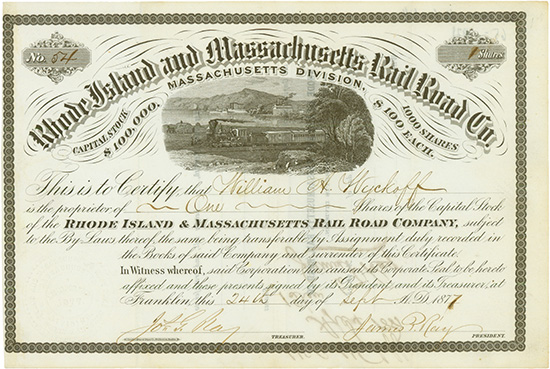 No. 54
1 Shares
Rhode Island and Massachusetts Rail Road Co.
MASSACHUSETTS DIVISION.
CAPITAL STOCK
$100,000.
1000 SHARES
$100 EACH.
This is to Certify, that William H. Wyckoff
is the proprietor of One Shares of the Capital Stock
of the RHODE ISLAND & MASSACHUSETTS RAIL ROAD COMPANY, subject
to the By Laws thereof, the same being transferable by Assignment duly recorded in
the Books of said Company and surrender of this Certificate.
In Witness whereof, said Corporation has caused its Corporate Seal to be hereto
affixed and these presents signed by its President, and its Treasurer, at
Franklin, this 24th day of Sept A.D. 1877
Jos. G. Ray TREASURER.
James P. Ray PRESIDENT.